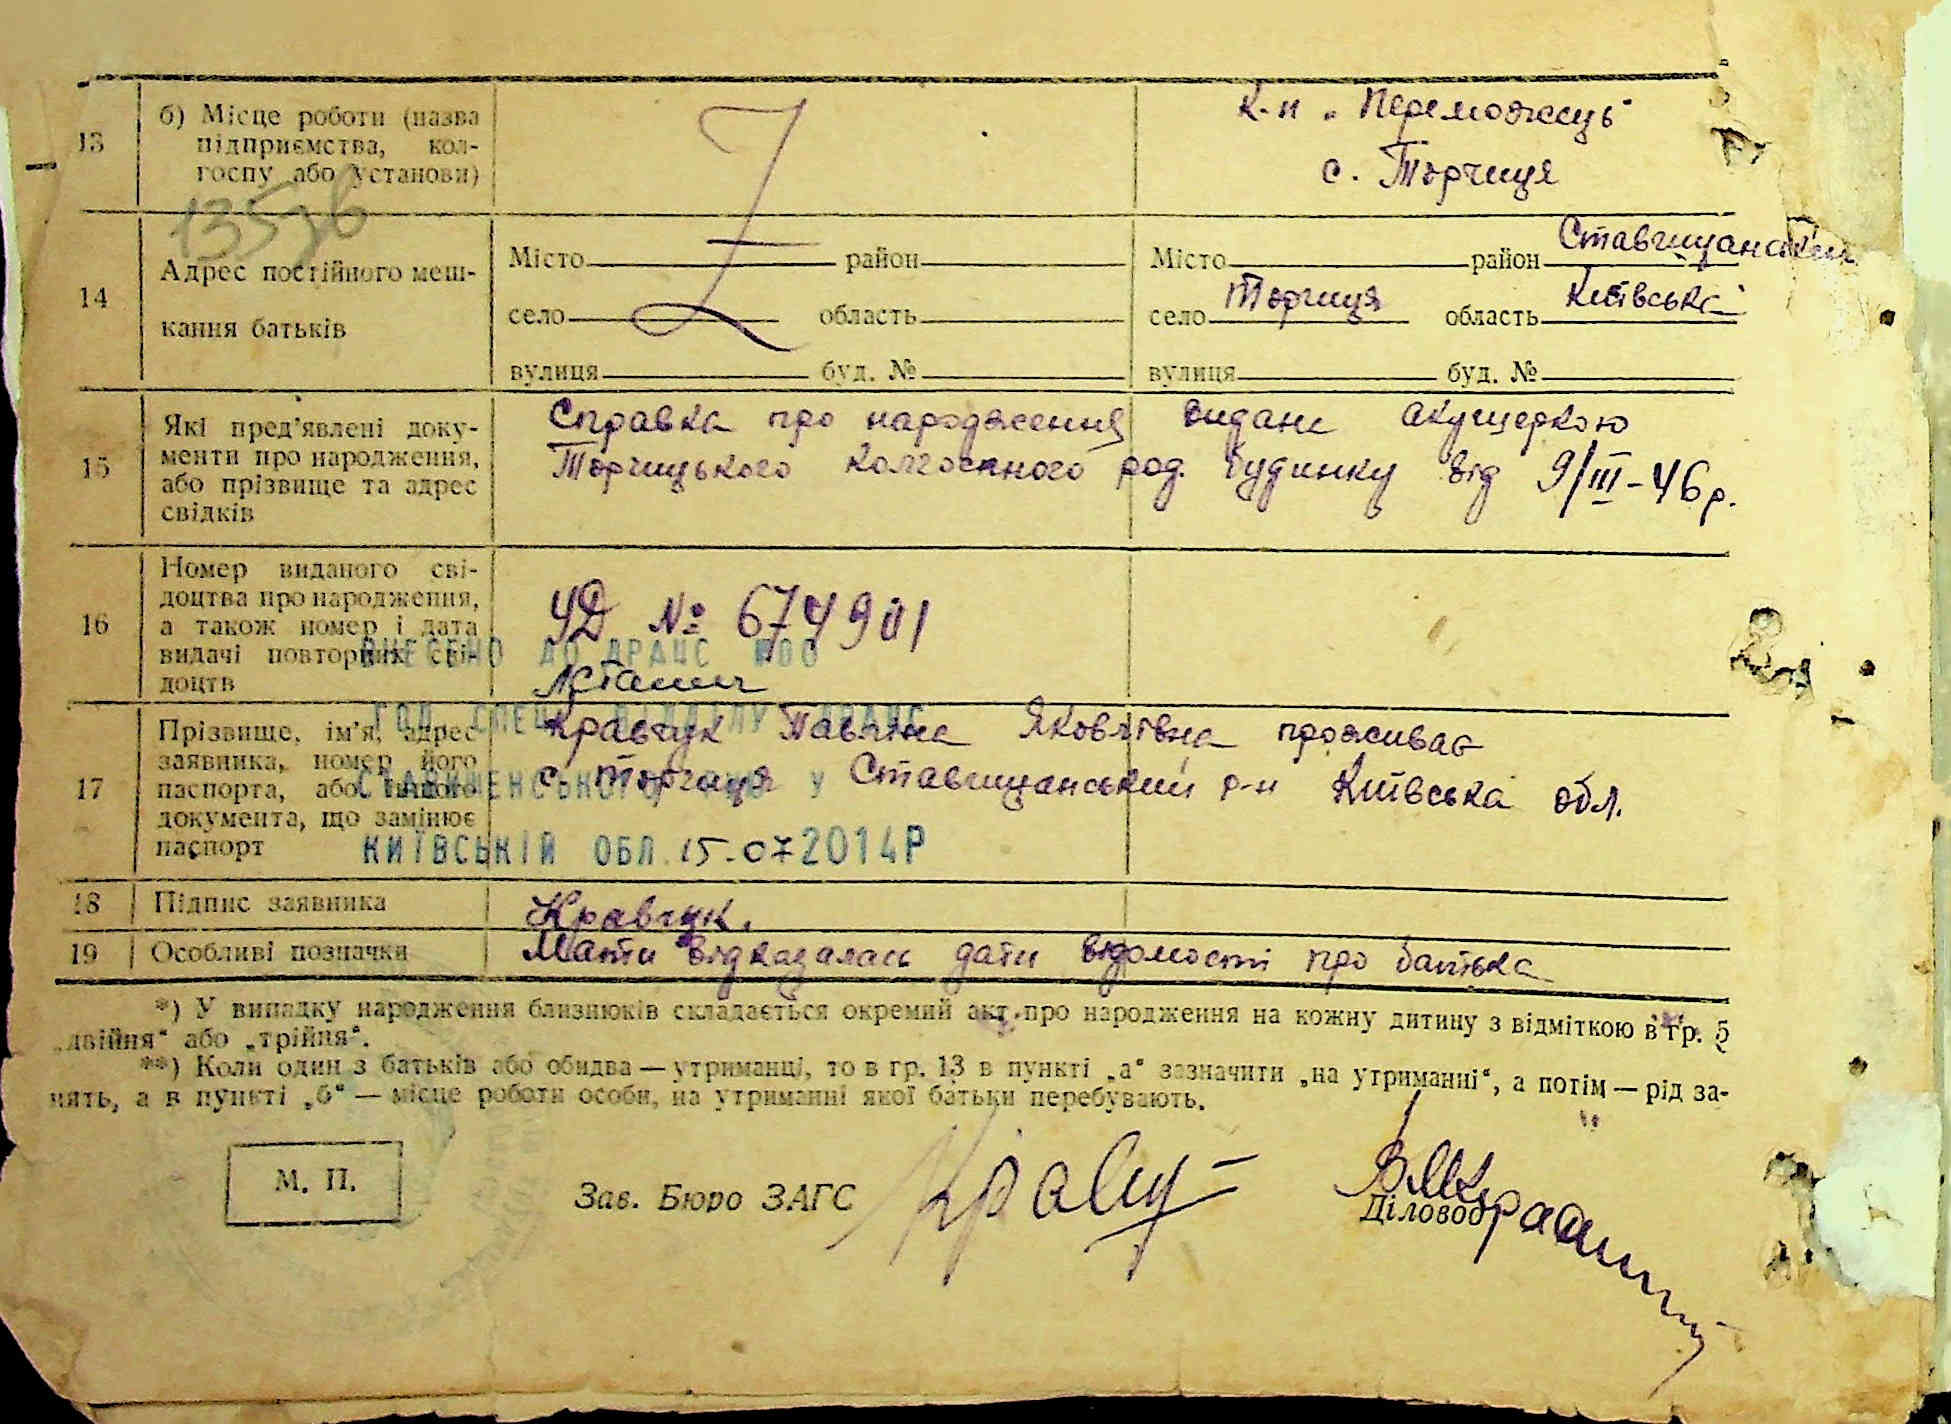 13 б) Місце роботи (назва підприємства, колгоспу або установи)
к-п „Переможець"
с. Торчиця
135зв
14 Адрес постійного мешкання батьків
Місто район Місто район Ставищанський
село область село Торчиця область Київська
вулиця буд. № вулиця буд. №
15 Які пред'явлені документи про народження, або прізвище та адрес свідків
Справка про народження видана акушеркою
Торчицького колгоспного род. будинку від 9/III-46 р.
16 Номер виданого свідоцтва про народження, а також номер і дата видачі повторних свідоцтв
УД № 674901
ВНЕСЕНО ДО ДРАЦС
17 Прізвище, ім'я, адрес заявника, номер його паспорта, або іншого документа, що замінює паспорт
Кравчук Павліна Яковлівна проживає
с. Торчиця Ставищанський р-н Київська обл.
КИЇВСЬКІЙ ОБЛ. 15.07 2014Р
18 Підпис заявника
Кравчук.
19 Особливі позначки
Мати відказалась дати відомості про батька
*) У випадку народження близнюків складається окремий акт про народження на кожну дитину з відміткою в гр. 5
„двійня" або „трійня".
**) Коли один з батьків або обидва — утриманці, то в гр. 13 в пункті „а" зазначити „на утриманні", а потім — рід за-
нять, а в пункті „б" — місце роботи особи, на утриманні якої батьки перебувають.
М. П.
Зав. Бюро ЗАГС
Діловод